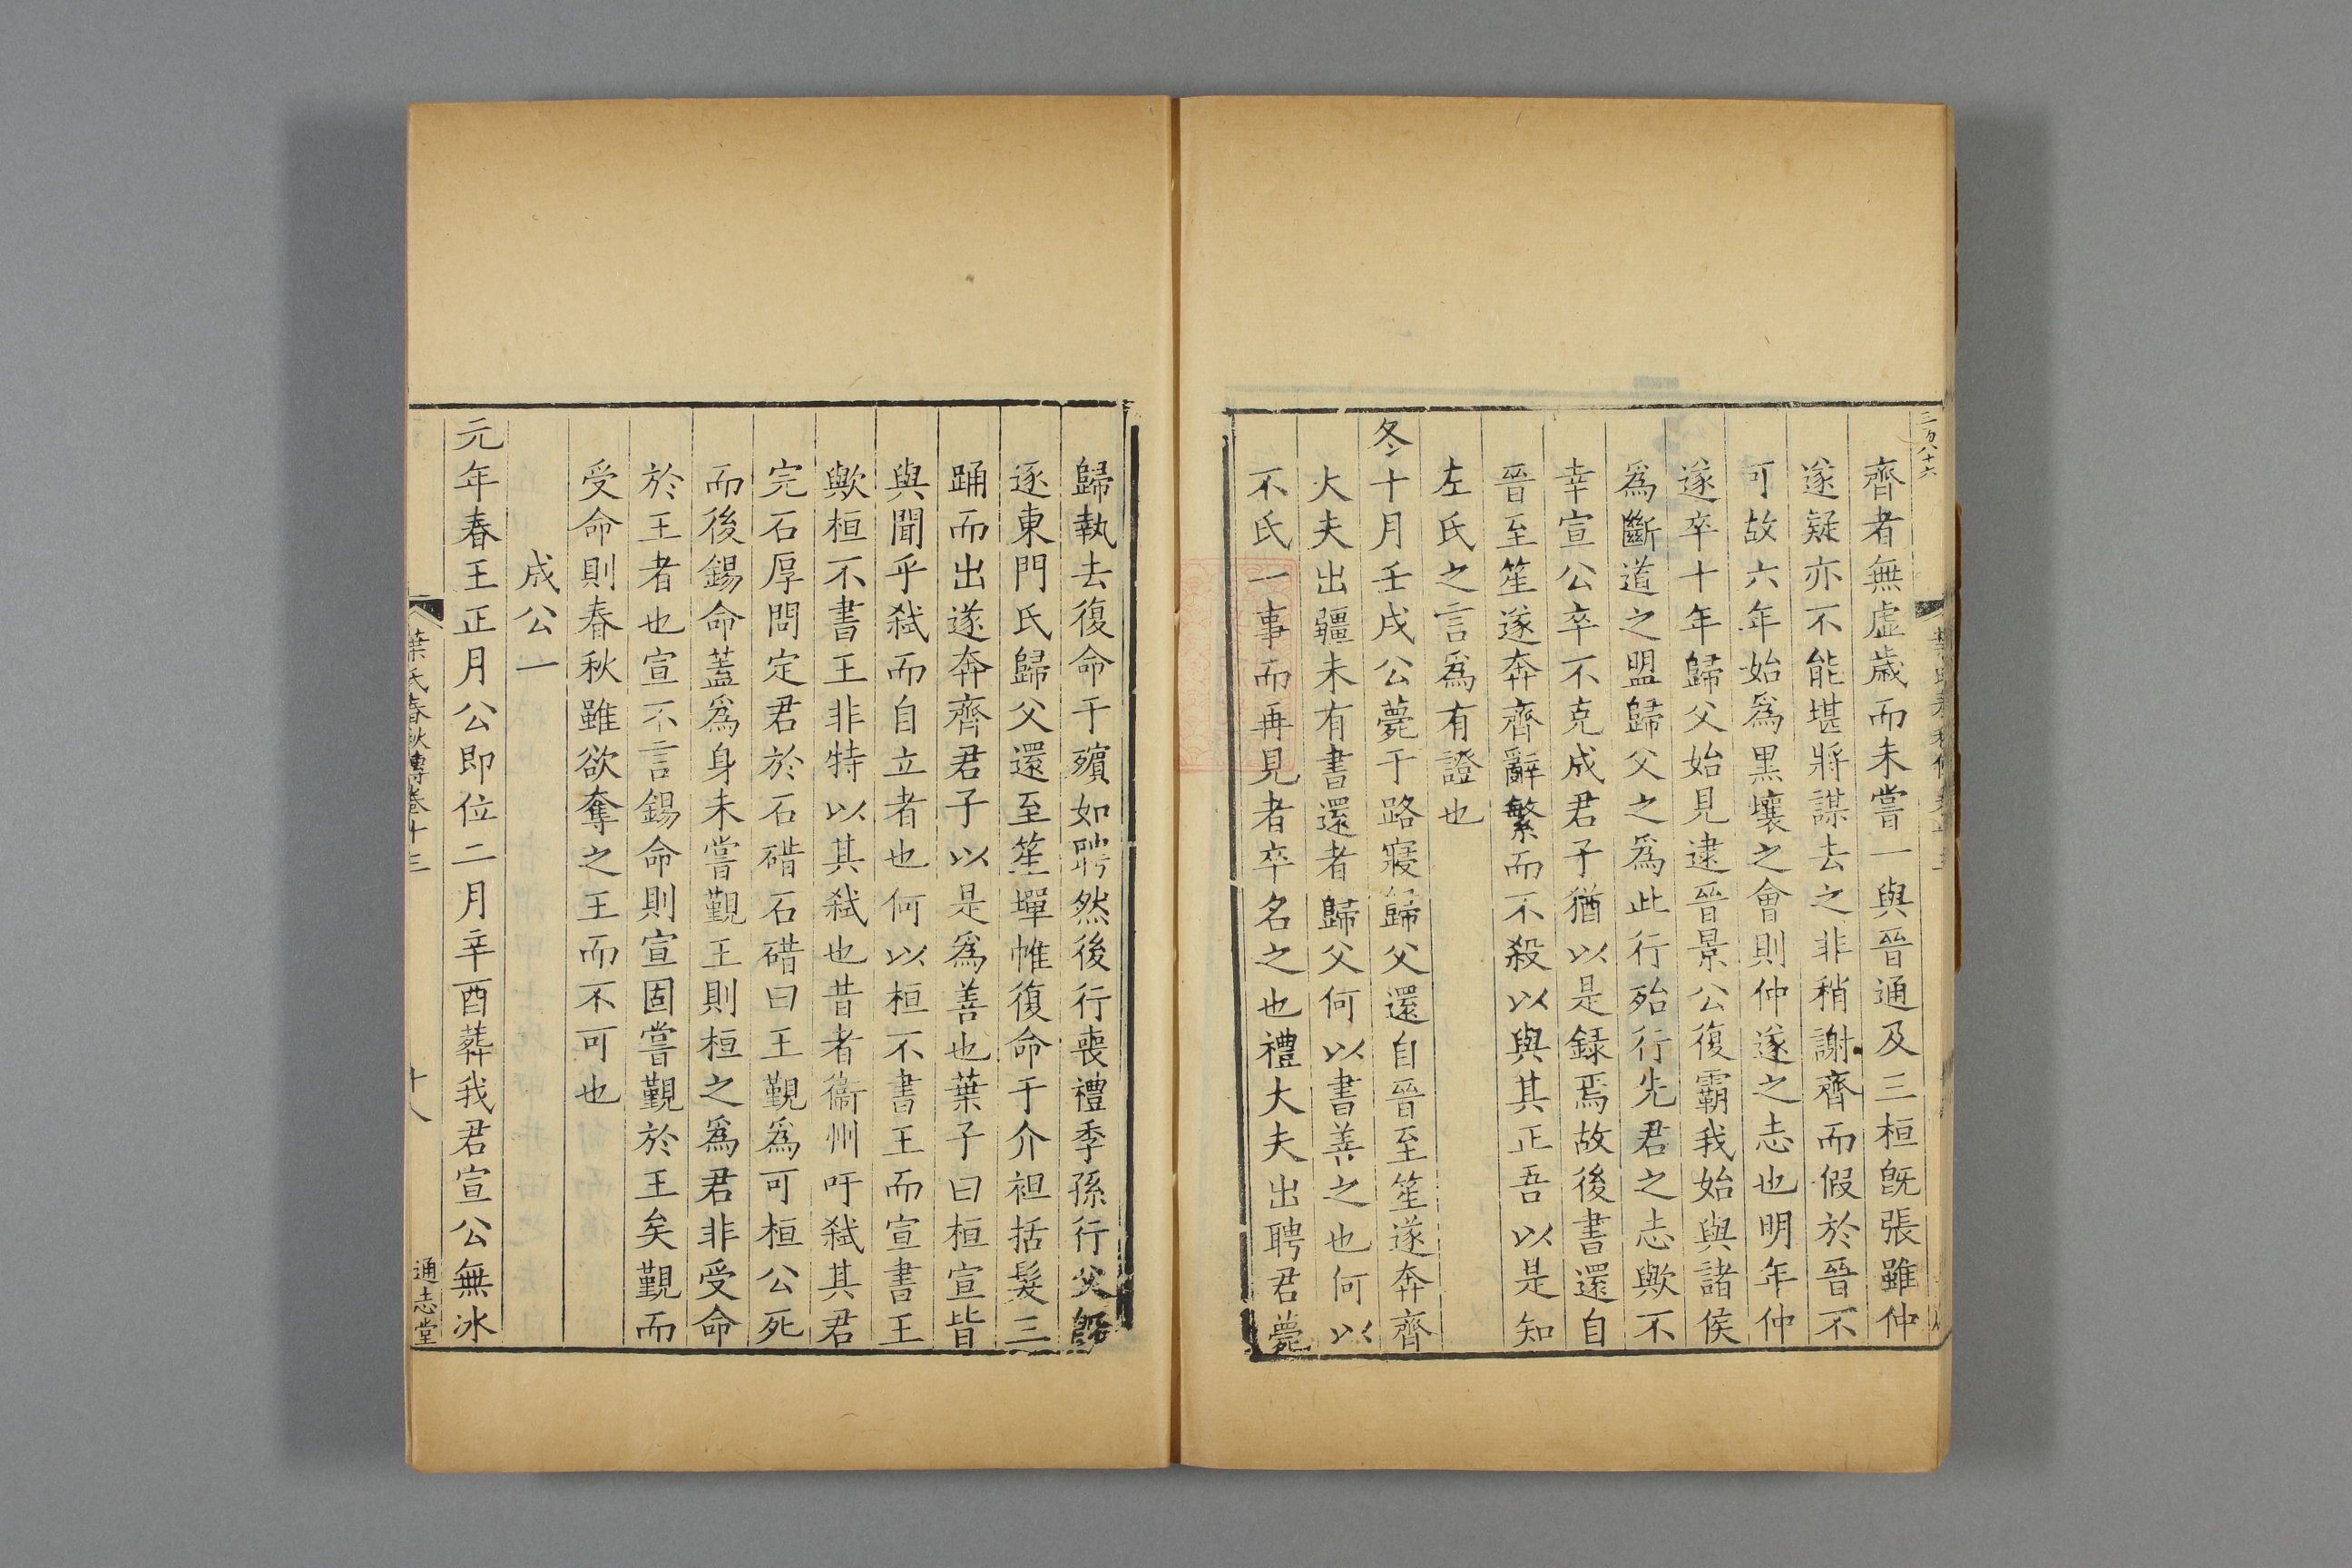 三百八十六
齊者無虛歲而未嘗一與晉通及三桓旣張雖仲
遂疑亦不能堪將謀去之非稍謝齊而假於晉不
可故六年始爲黑壤之會則仲遂之志也明年仲
遂卒十年歸父始見逮晉景公復霸我始與諸侯
爲斷道之盟歸父之爲此行殆行先君之志歟不
幸宣公卒不克成君子猶以是録焉故後書還自
晉至笙遂奔齊辭繁而不殺以與其正吾以是知
左氏之言爲有證也
冬十月壬戌公薨于路寢歸父還自晉至笙遂奔齊
大夫出疆未有書還者歸父何以書善之也何以
不氏一事而再見者卒名之也禮大夫出聘君薨
歸執去復命于殯如聘然後行喪禮季孫行父旣
逐東門氏歸父還至笙墠帷復命于介袒括髮三
踊而出遂奔齊君子以是爲善也葉子曰桓宣皆
與聞乎弒而自立者也何以桓不書王而宣書王
歟桓不書王非特以其弒也昔者衞州吁弒其君
完石厚問定君於石碏石碏曰王覲爲可桓公死
而後錫命蓋爲身未嘗覲王則桓之爲君非受命
於王者也宣不言錫命則宣固嘗覲於王矣覲而
受命則春秋雖欲奪之王而不可也
成公一
元年春王正月公即位二月辛酉葬我君宣公無冰
葉氏春秋傳卷十三
十八
通志堂